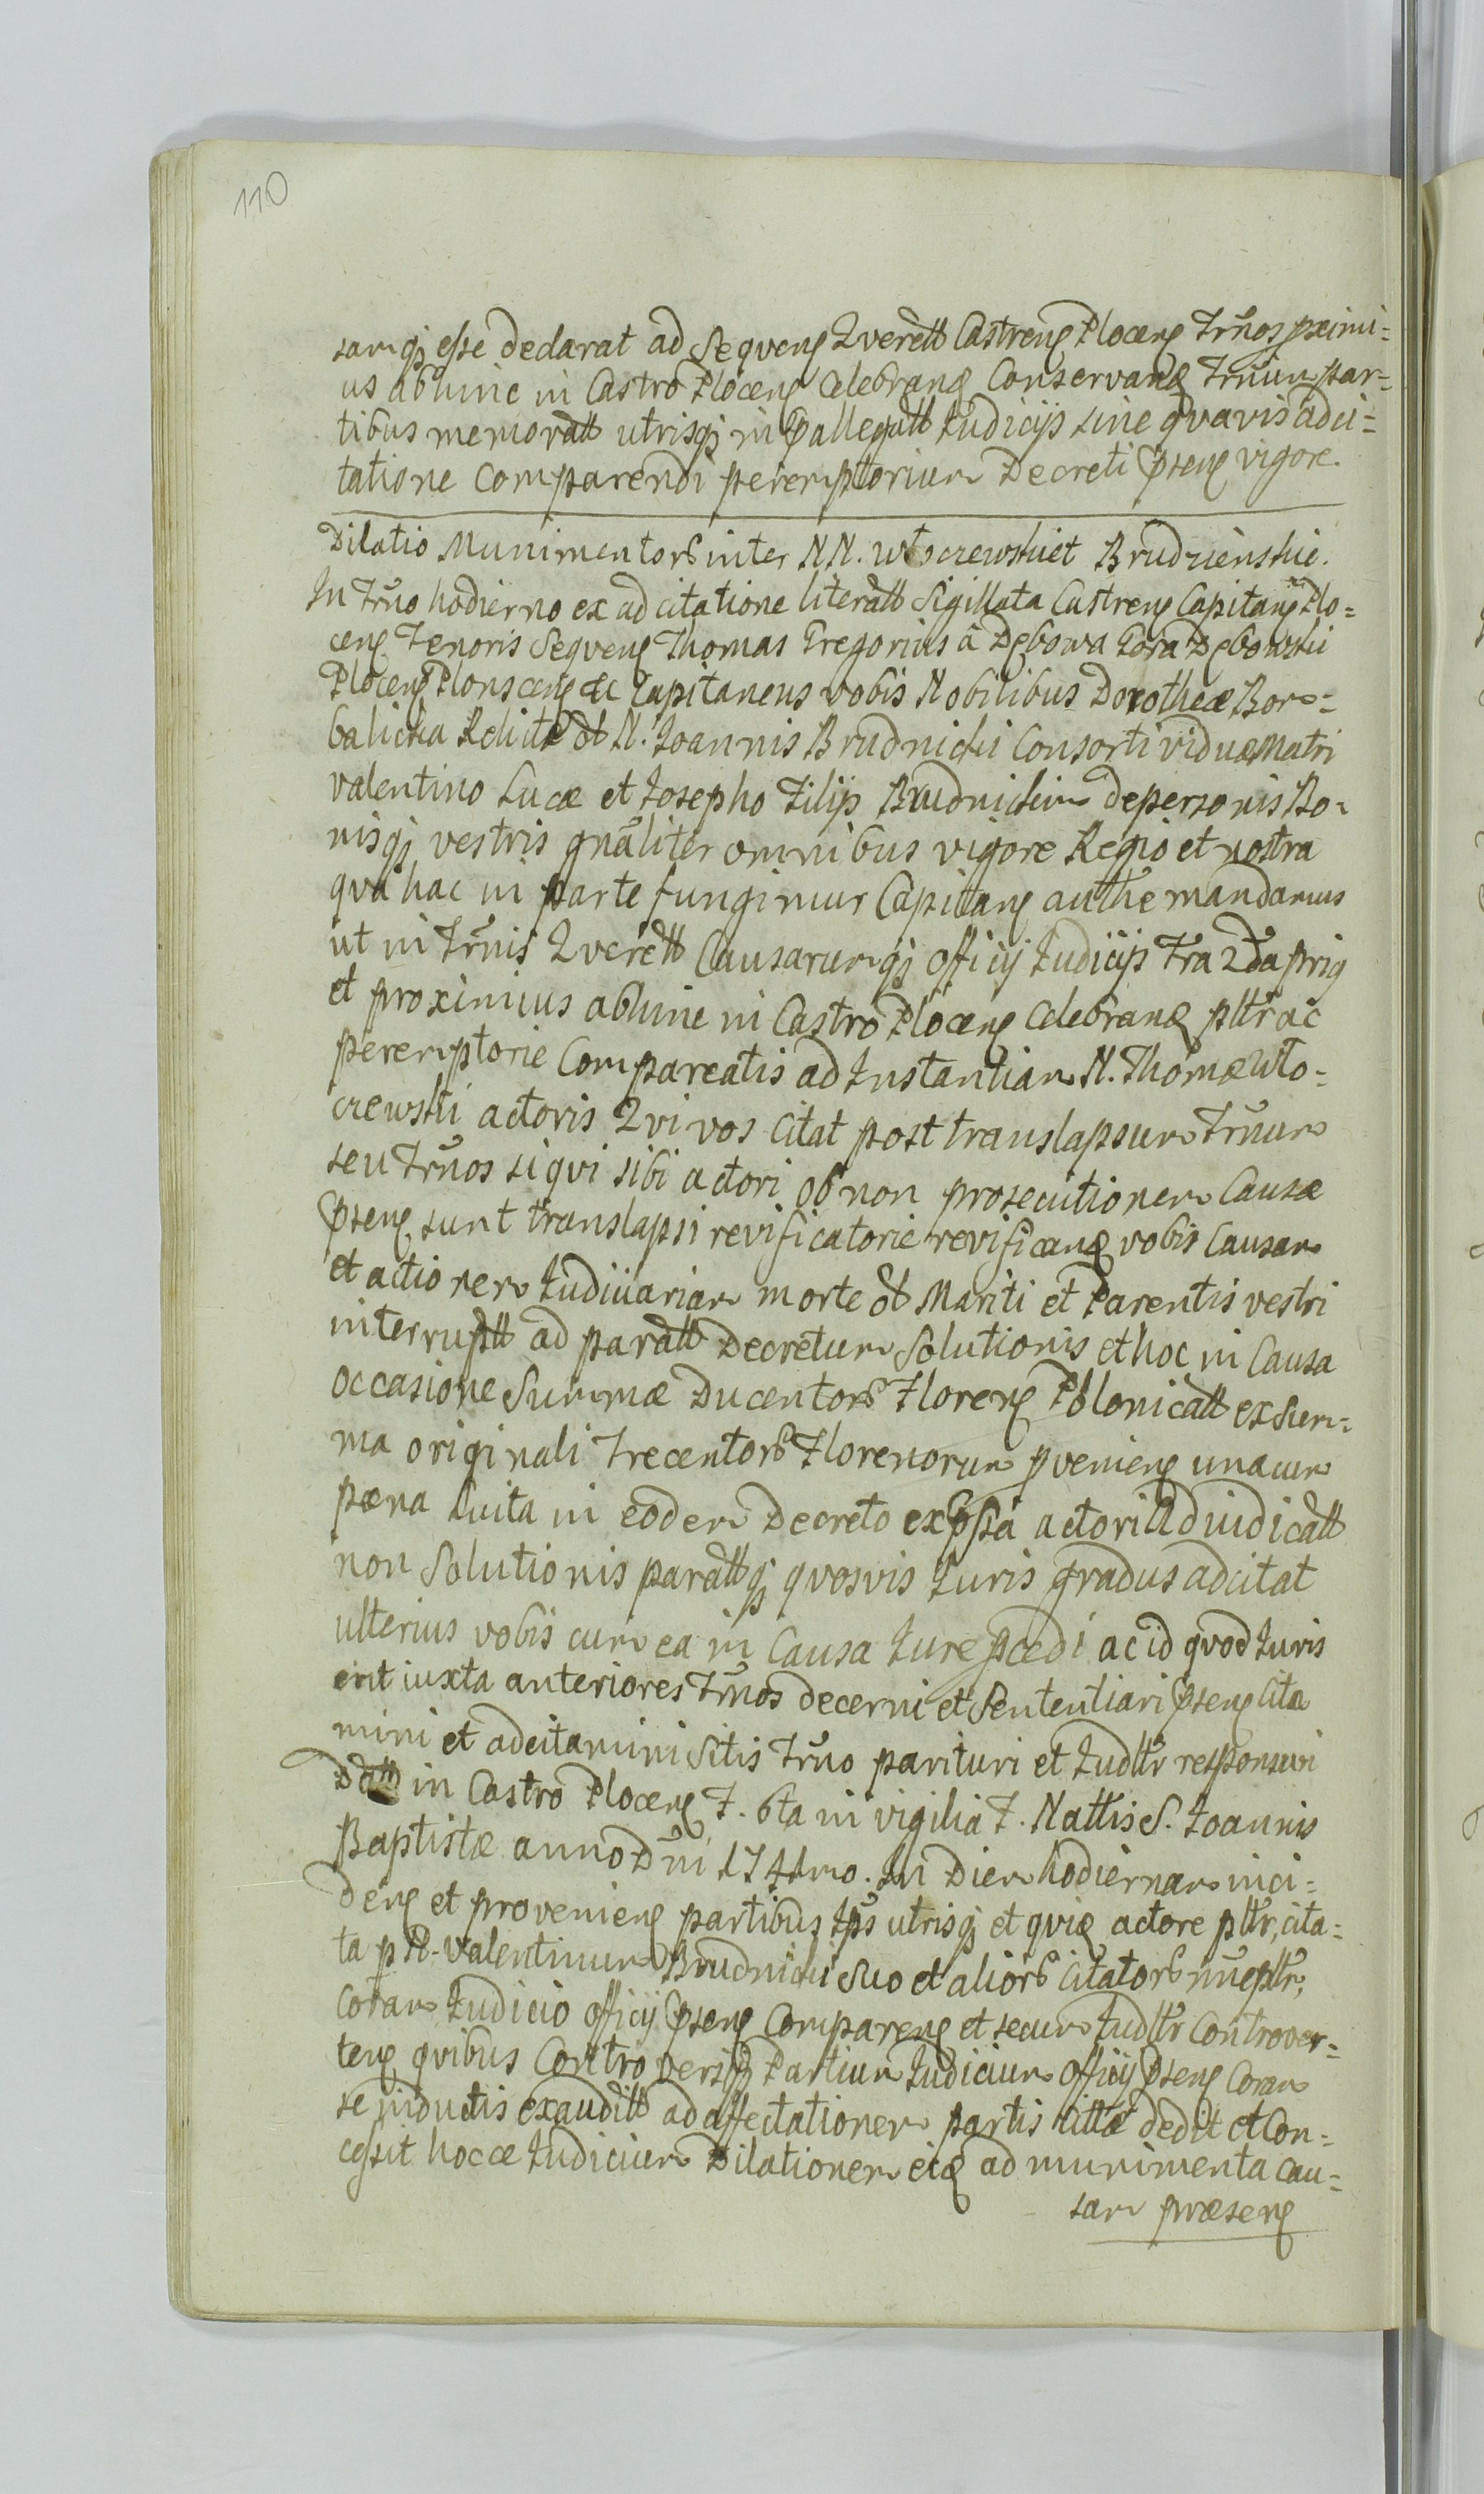 110
samqz esse declarat ad Seqvens Qverell Castrens Plocens Trnos pximi=
us abhinc in Castro Plocens Celebrand Conservand Trnum par=
tibus memoratt utrisqz in pallegatt Judicijs sine qvavis adci=
tatione Comparendi peremptorium Decreti psens vigore.
Dilatio Munimentorb inter NN. Wtoczewski et Brudzienskie.
In Trno hodierno ex adcitatione literatt Sigillata Castrens Capitans Plo=
cens Tenoris Seqvens Thomas Gregorius à Debowa Gora Debowski
Plocens Plonscens &c Capitaneus vobis Nobilibus Dorotheæ Bor=
balicka Relictæ ol N. Joannis Brudnicki Consorti viduæ Matri
valentino Lucæ et Josepho Filijs Brudnickim de personis Bo=
nisqz vestris gnaliter omnibus vigore Regio et nostra
qva hac in parte fungimur Capitans authe mandamus
ut in Trnis Qverell Causarumqz Officij Judicijs Fra 2da prig
et proximius abhinc in Castro Plocens Celebrand pltr ac
peremptorie Compareatis ad Instantiam N. Thomæ Wto=
czewski actoris Qvi vos Citat post translapsum Trnum
seu Trnos si qvi sibi actori ob non prosecutionem Causæ
psens sunt translapsi revificatorie revificand vobis Causam
et actionem Judiciariam morte ol Mariti et Parentis vestri
interruptt ad paratt Decretum Solutionis et hoc in Causa
occasione Summæ Ducentorb Florens Polonicatt ex Sum=
ma originali Trecentorb Florenorum pveniens una cum
pæna Luita in eodem Decreto expssa actori Adiudicatt
non Solutionis parattqz qvosvis Juris gradus adcitat
ulterius vobis cum ea in Causa Jure pcedi ac id qvod Juris
erit iuxta anteriores Trnos decerni et Sententiari psens Cita
mini et adcitamini Sitis Trno parituri et Judltr responsuri
Datt in Castro Plocens F. 6ta in vigilia F. Nattis S. Joannis
Baptistæ anno Dni 1741mo. In Diem hodiernam inci=
dens et proveniens partibus Jps utrisqz et qvid actore pltr, cita=
ta p N. Valentinum Brudnicki Suo et aliorb Citatorb nne pltr,
Coram Judicio Officij psens Comparens et secum Judltr Controver=
tens qvibus Controversijs Partium Judicium Officij psens Coram
se inductis exauditt ad affectationem partis Cittæ dedit et Con=
cessit hocce Judicium Dilationem eid ad munimenta Cau=
sam præsens